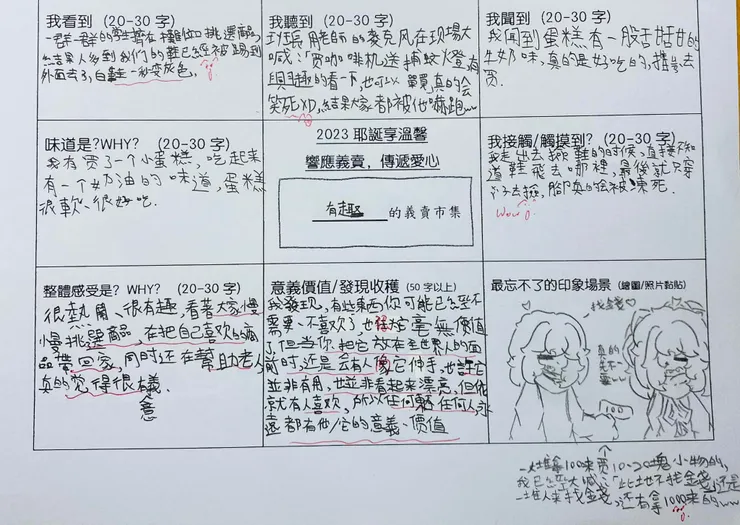 我看到 (20-30 字)
一群一群的學生擠在攤位挑選商品,
結果人多到我們的鞋已經被踢到
外面去了,白鞋一秒变灰色。
我聽到 (20-30 字)
班長用老師的麥克风在現場大
喊:「買咖啡机送捕蚊燈,有
興趣的看一下,也可以單買,真的会
笑死XD,結果大家都被他嚇跑ww
我聞到 (20-30 字)
我聞到蛋糕有一股甜甜的
牛奶味,真的是好吃的,推薦去
買.
味道是?WHY? (20-30 字)
我有買了一个小蛋糕,吃起來
有一个奶油的味道,蛋糕
很軟、很好吃.
2023 耶誕享溫馨
響應義賣,傳遞愛心
有趣 的義賣市集
我接觸/觸摸到? (20-30 字)
我走出去挑鞋的時候,直接不知
道鞋飛去哪裡,最後就只穿
子去撿,腳真的会被凍死.
Wow
整體感受是? WHY? (20-30 字)
很熱鬧、很有趣,看著大家慢
慢挑選商品,在把自己喜欢的商
品帶回家,同时还在幫助老人
真的覚得很有義意.
意義價值/發現收穫 (50 字以上)
我發現,有些東西你可能已經不
需要、不喜欢了,也許它毫無價值
了但当你把它放在全世界人的面
前时,还是会有人像它伸手,也許它
並非有用,也並非看起來漂亮,但他
就有人喜欢,所以任何東西任何人永
遠都有他/它的意義、價值
最忘不了的印象場景 (繪圖/照片黏貼)
找錢♡
真的
找不
開
一堆拿100來買10~20塊小物的,
我已經大喊:「此地不找金錢」还是
一堆人來找金錢,还有拿1000來的ww